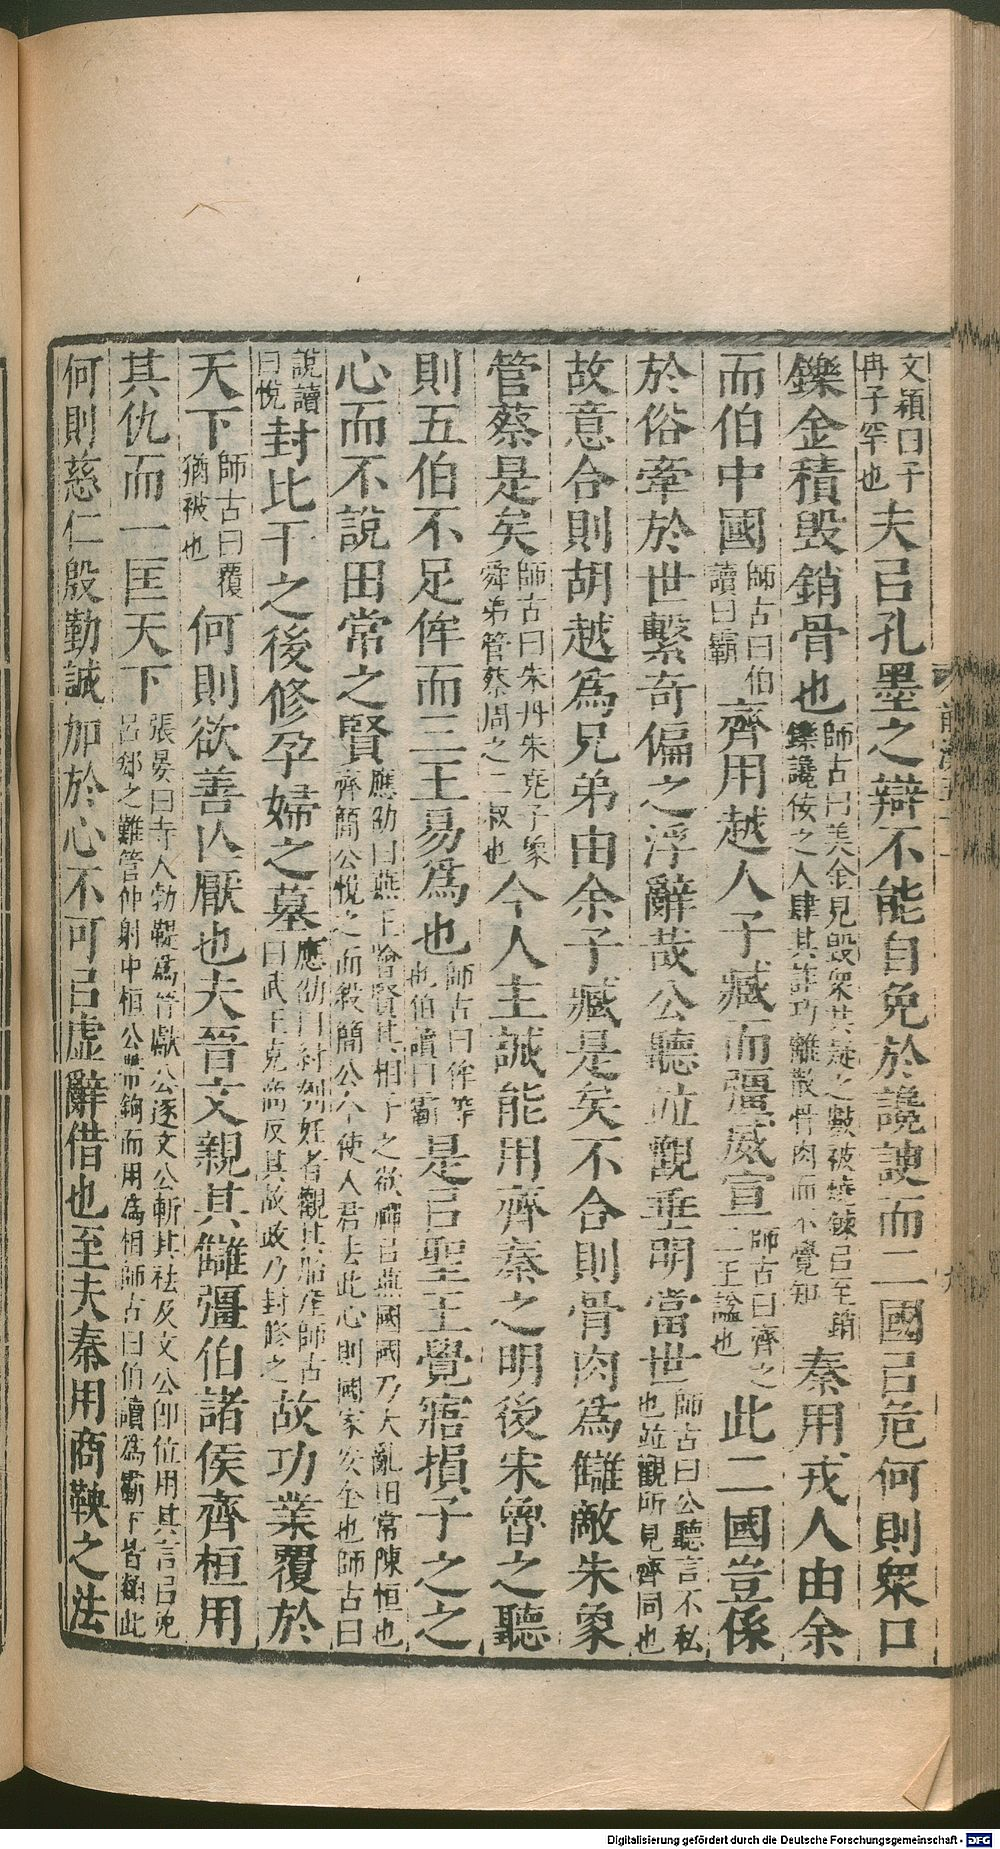 文穎曰子冉子罕也夫㠯孔墨之辯不能自免於讒諛而二國㠯危何則衆口
鑠金積毀銷骨也師古曰美金見毀衆共疑之數被燒鍊㠯至銷鑠讒佞之人肆其詐巧離散骨肉而不覺知秦用戎人由余
而伯中國師古曰伯讀曰霸齊用越人子臧而彊威宣師古曰齊之二王諡也此二國豈係
於俗牽於世繫奇偏之浮辭哉公聽竝觀垂明當世師古曰公聽言不私也竝觀所見齊同也
故意合則胡越爲兄弟由余子臧是矣不合則骨肉爲讎敵朱象
管蔡是矣師古曰朱丹朱堯子象舜弟管蔡周之二叔也今人主誠能用齊秦之明後宋魯之聽
則五伯不足侔而三王易爲也師古曰侔等也伯讀曰霸是㠯聖王覺寤損子之之
心而不說田常之賢應劭曰燕王噲賢其相子之欲禪㠯燕國國乃大亂田常陳恒也齊簡公悅之而殺簡公今使人君去此心則國家安全也師古曰
說讀曰悅封比干之後修孕婦之墓應劭曰紂刳妊者觀其胎產師古曰武王克商反其故政乃封修之故功業覆於
天下師古曰覆猶被也何則欲善亾厭也夫晉文親其讎彊伯諸侯齊桓用
其仇而一匡天下張晏曰寺人勃鞮爲晉獻公逐文公斬其袪及文公卽位用其言㠯免呂郤之難管仲射中桓公帶鉤而用爲相師古曰伯讀爲霸下皆類此
何則慈仁殷勤誠加於心不可㠯虛辭借也至夫秦用商鞅之法
Digitalisierung gefördert durch die Deutsche Forschungsgemeinschaft - DFG